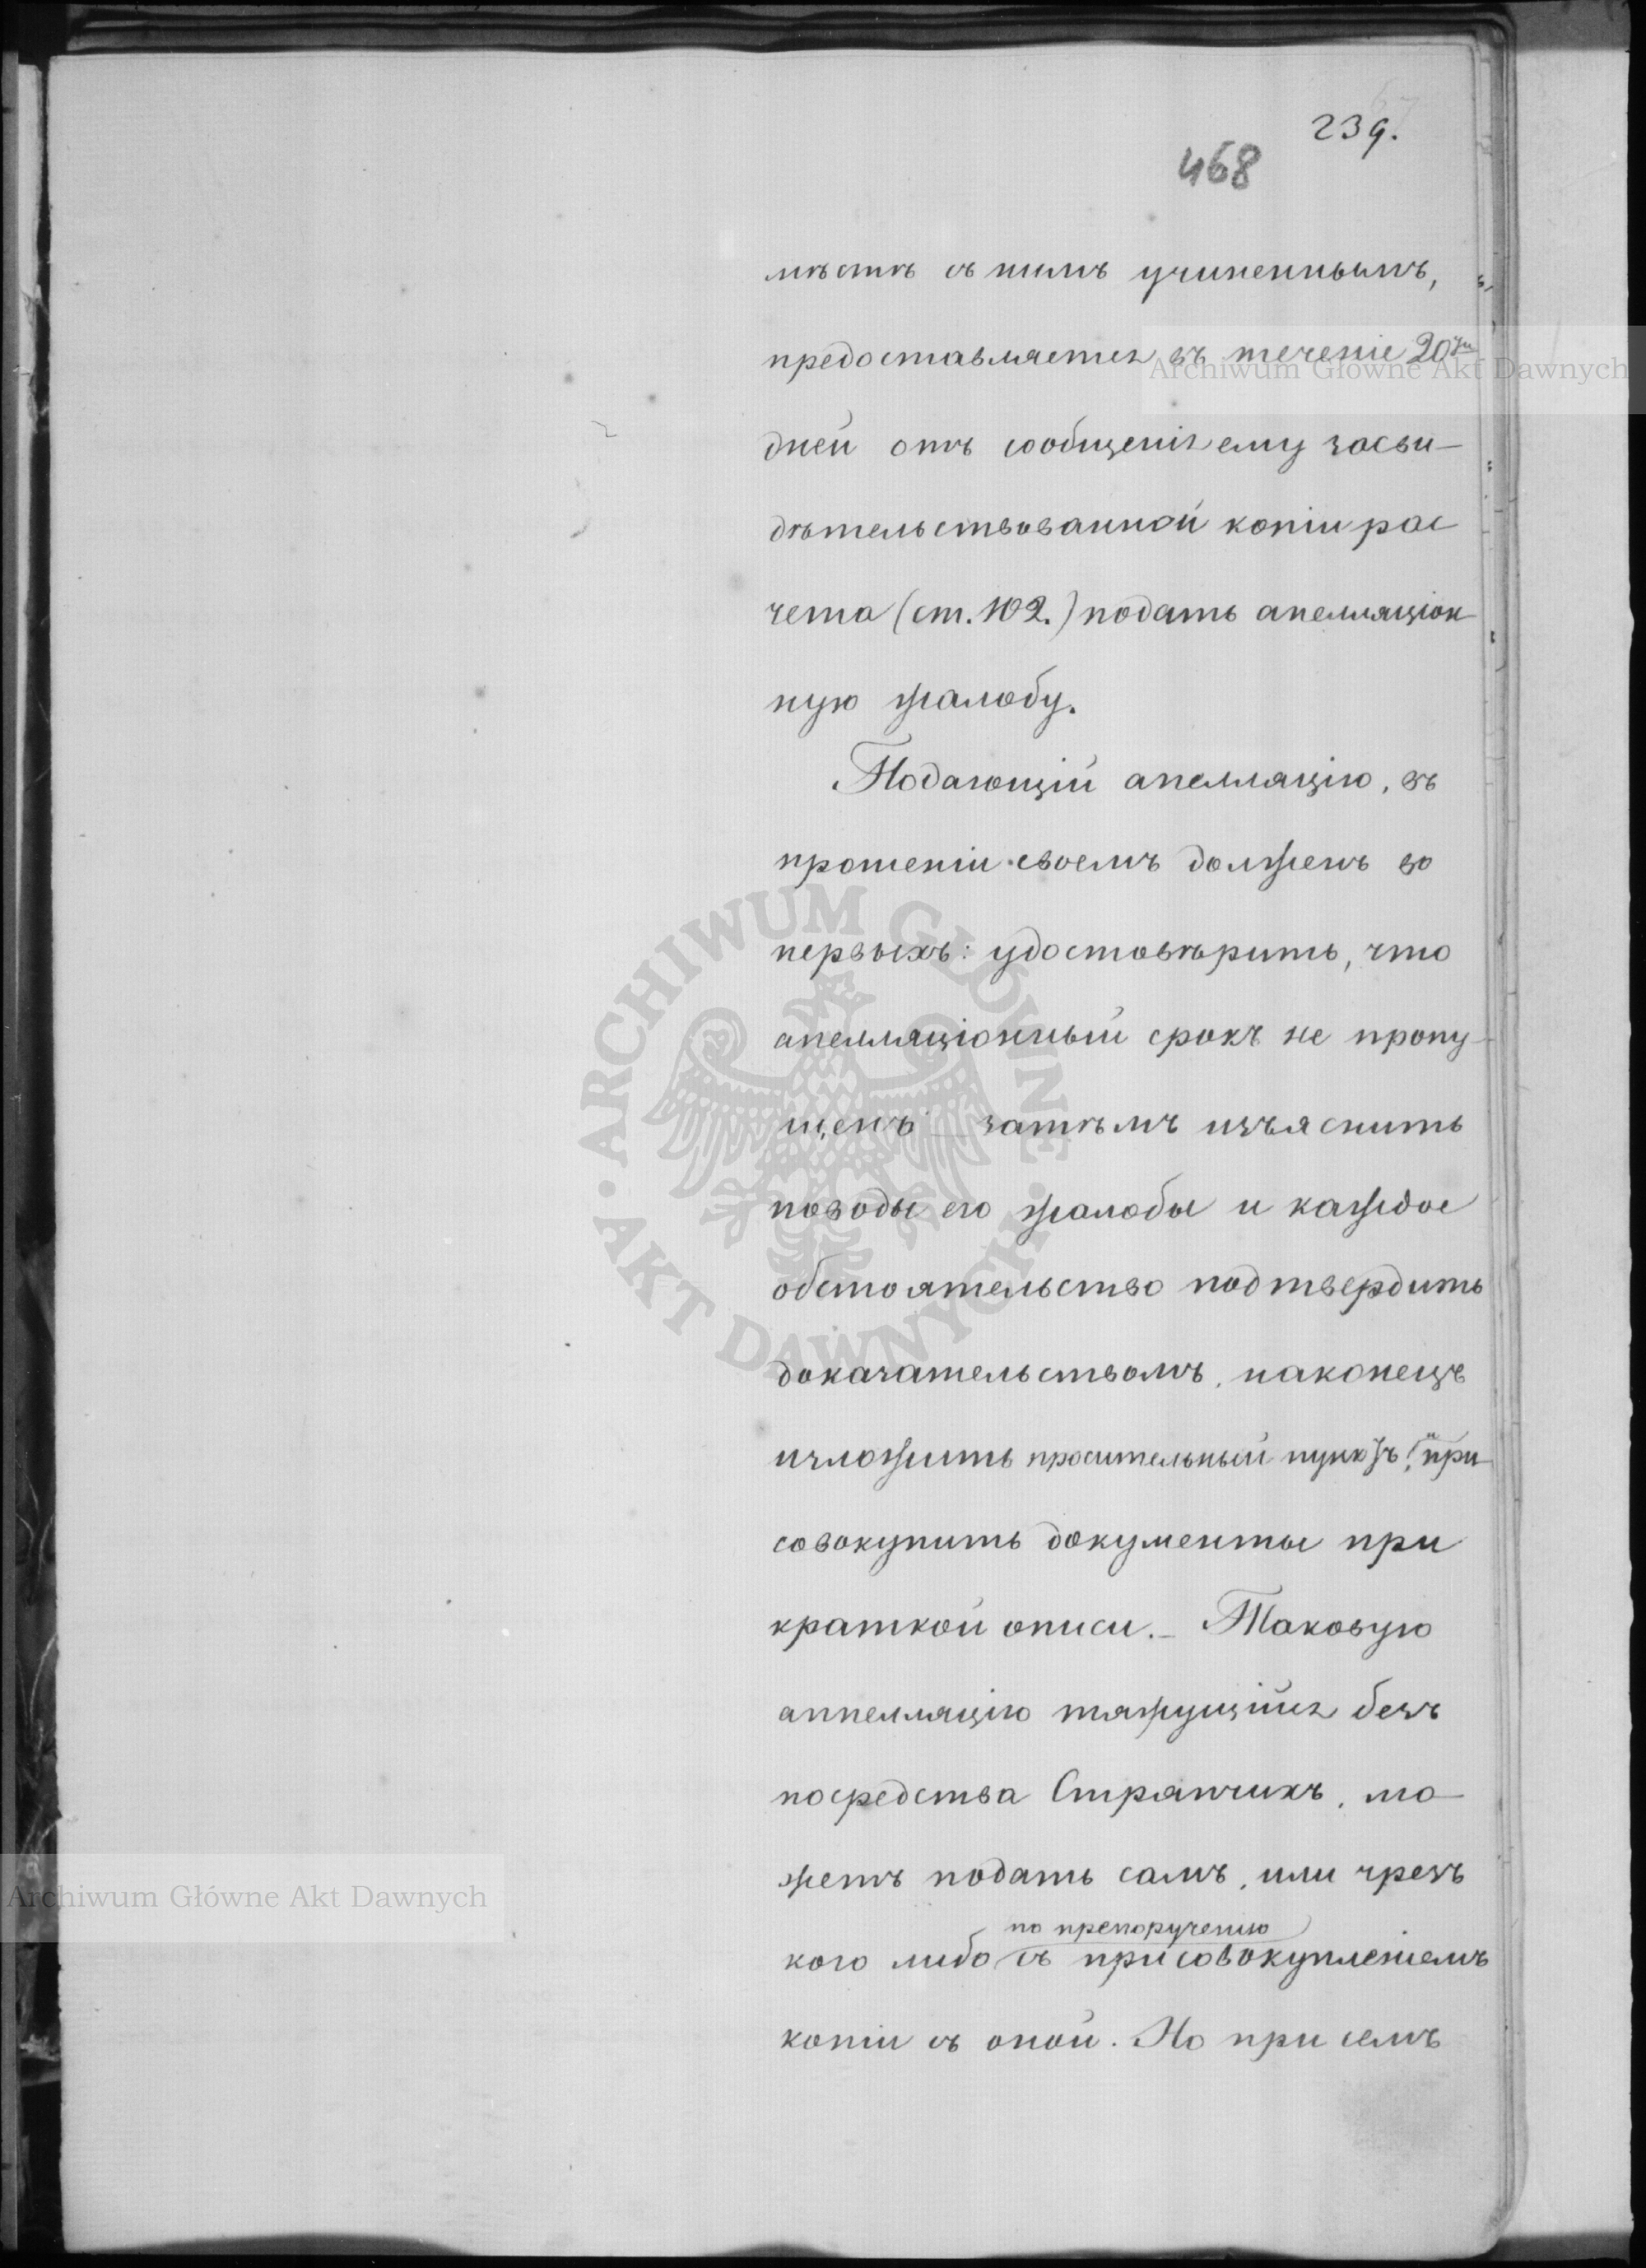 239.
468
мѣстѣ съ нимъ учиненнымъ,
предоставляется въ теченіе 20ти
дней отъ сообщенія ему засви-
дѣтельствованной копіи рас
чета (ст. 102.) подать апелляціон-
ную жалобу.
Подающій апелляцію, въ
прошеніи своемъ долженъ во
первыхъ: удостовѣрить, что
апелляціонный срокъ не пропу-
щенъ затѣмъ изъяснить
поводы его жалобы и каждое
обстоятельство подтвердить
доказательствомъ, наконецъ
изложить просительный пунктъ, и при-
совокупить документы при
краткой описи. – Таковую
аппелляцію тяжущійся безъ
посредства Стряпчихъ, мо-
жетъ подать самъ, или чрезъ
по препорученію
кого либо съ присовокупленіемъ
копіи съ оной. Но при семъ
Archiwum Główne Akt Dawnych
ARCHIWUM GŁÓWNE · AKT DAWNYCH ·
Archiwum Główne Akt Dawnych